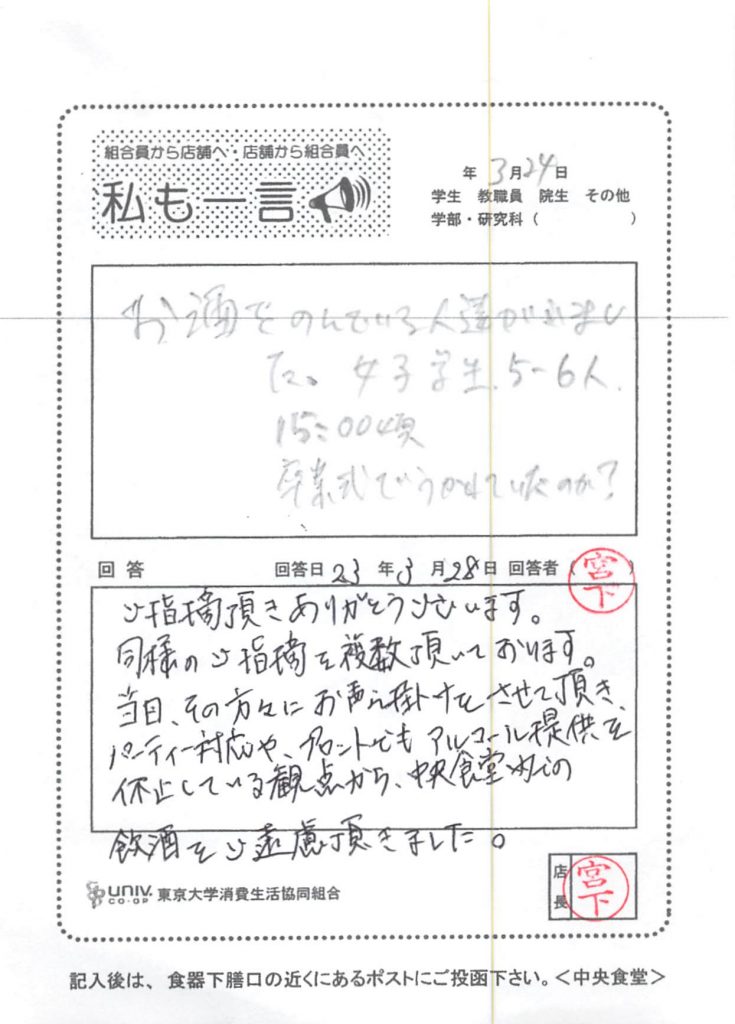 組合員から店舗へ・店舗から組合員へ
私も一言
年 3月24日
学生 教職員 院生 その他
学部・研究科（ ）
お酒をのんでいる人達がいまし
た。女子学生、5-6人、
15:00頃
卒業式でうかれていたのか?
回答 回答日 23 年 3 月 28 日 回答者（宮下）
ご指摘頂きありがとうございます。
同様のご指摘を複数頂いております。
当日、その方々にお声掛けをさせて頂き、
パーティー対応や、フロントでもアルコール提供を
休止している観点から、中央食堂内での
飲酒をご遠慮頂きました。
店長 宮下
UNIV. CO-OP 東京大学消費生活協同組合
記入後は、食器下膳口の近くにあるポストにご投函下さい。＜中央食堂＞